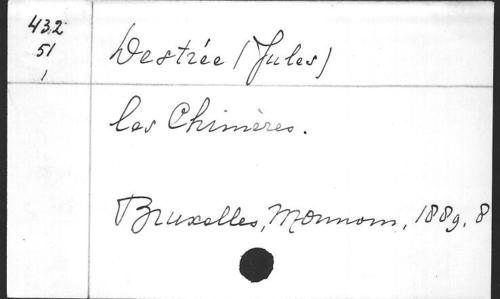 432
51
1
Destrée (Jules)
les Chimères.
Bruxelles, Monnom, 1889, 8